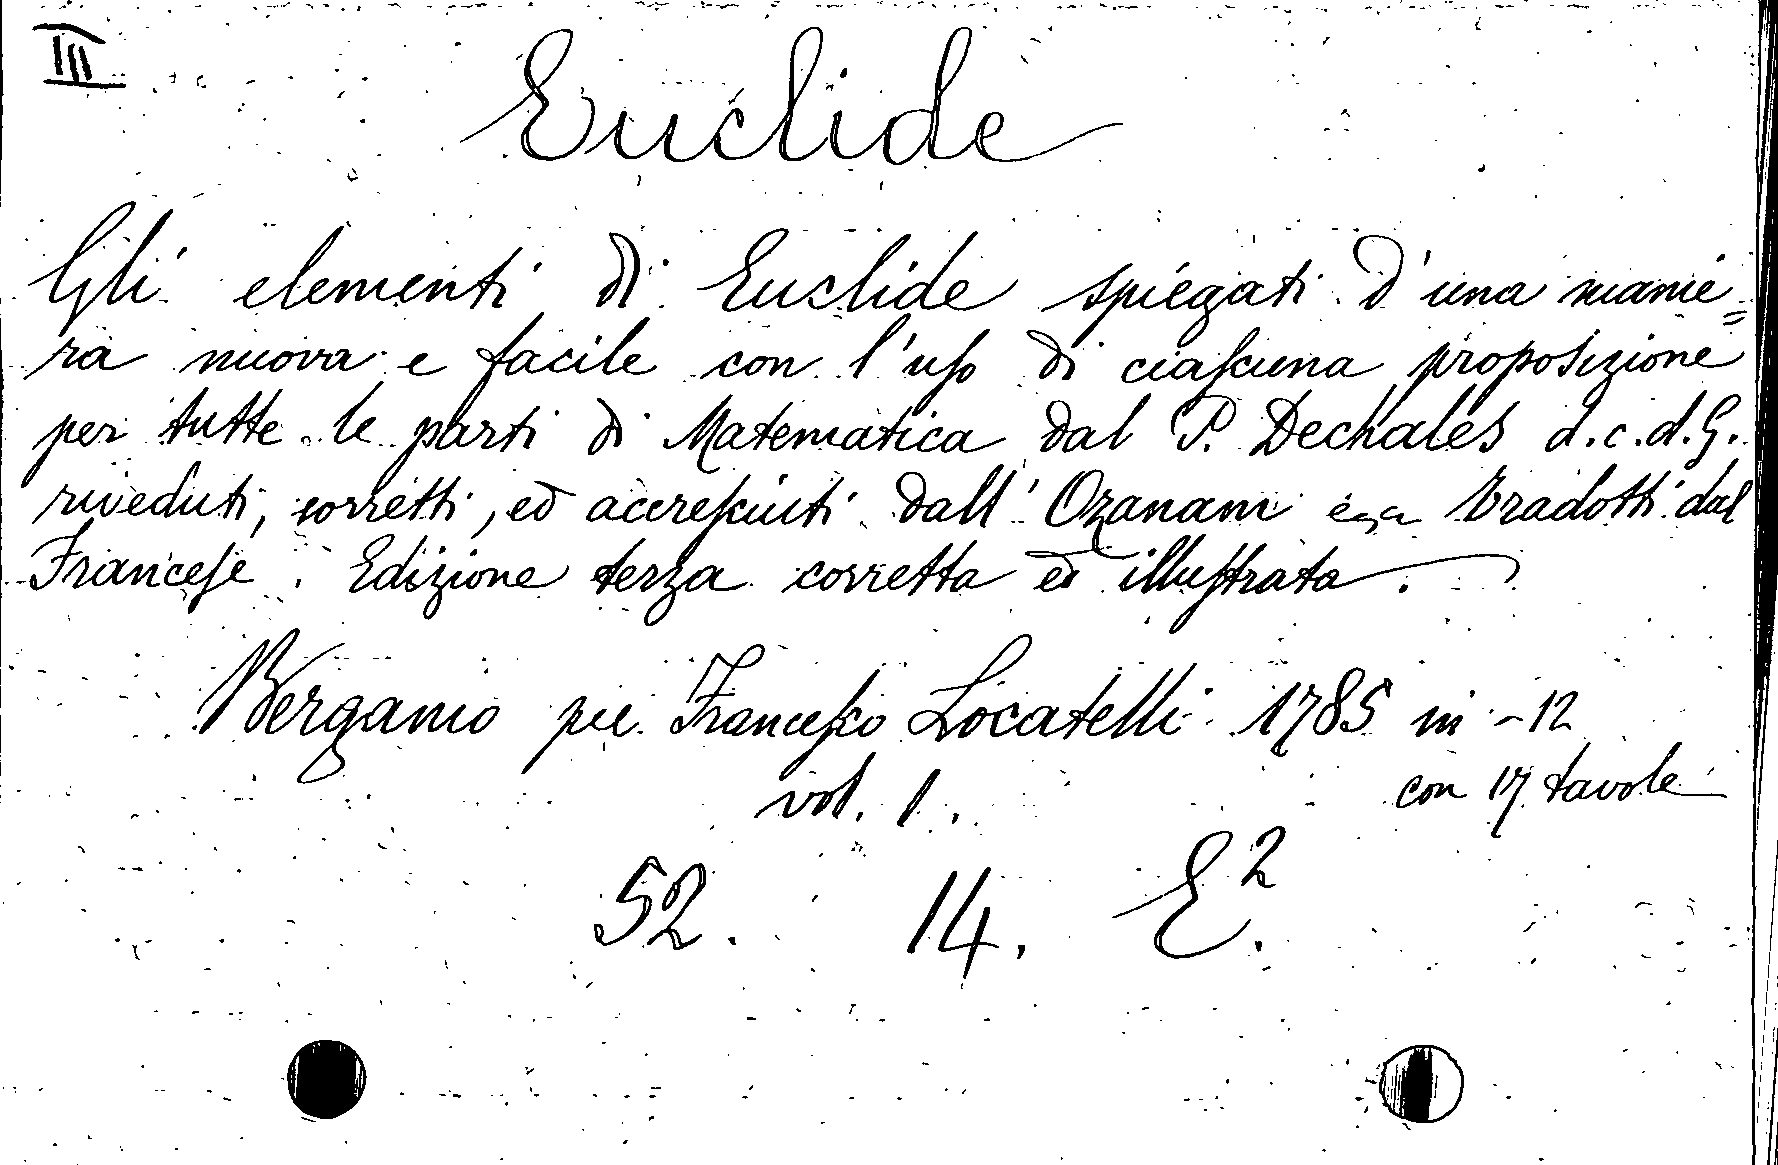 III
Euclide
Gli elementi di Euclide spiegati d'una manie=
ra nuova e facile con l'uso di ciascuna proposizione
per tutte le parti di Matematica dal P. Dechales d.c.d.G.
riveduti, corretti, ed accresciuti dall' Ozanam tradotti dal
Francese. Edizione terza corretta ed illustrata.
Bergamo per Francesco Locatelli 1785 in-12
vol. 1. con 17 tavole
52. 14. E².